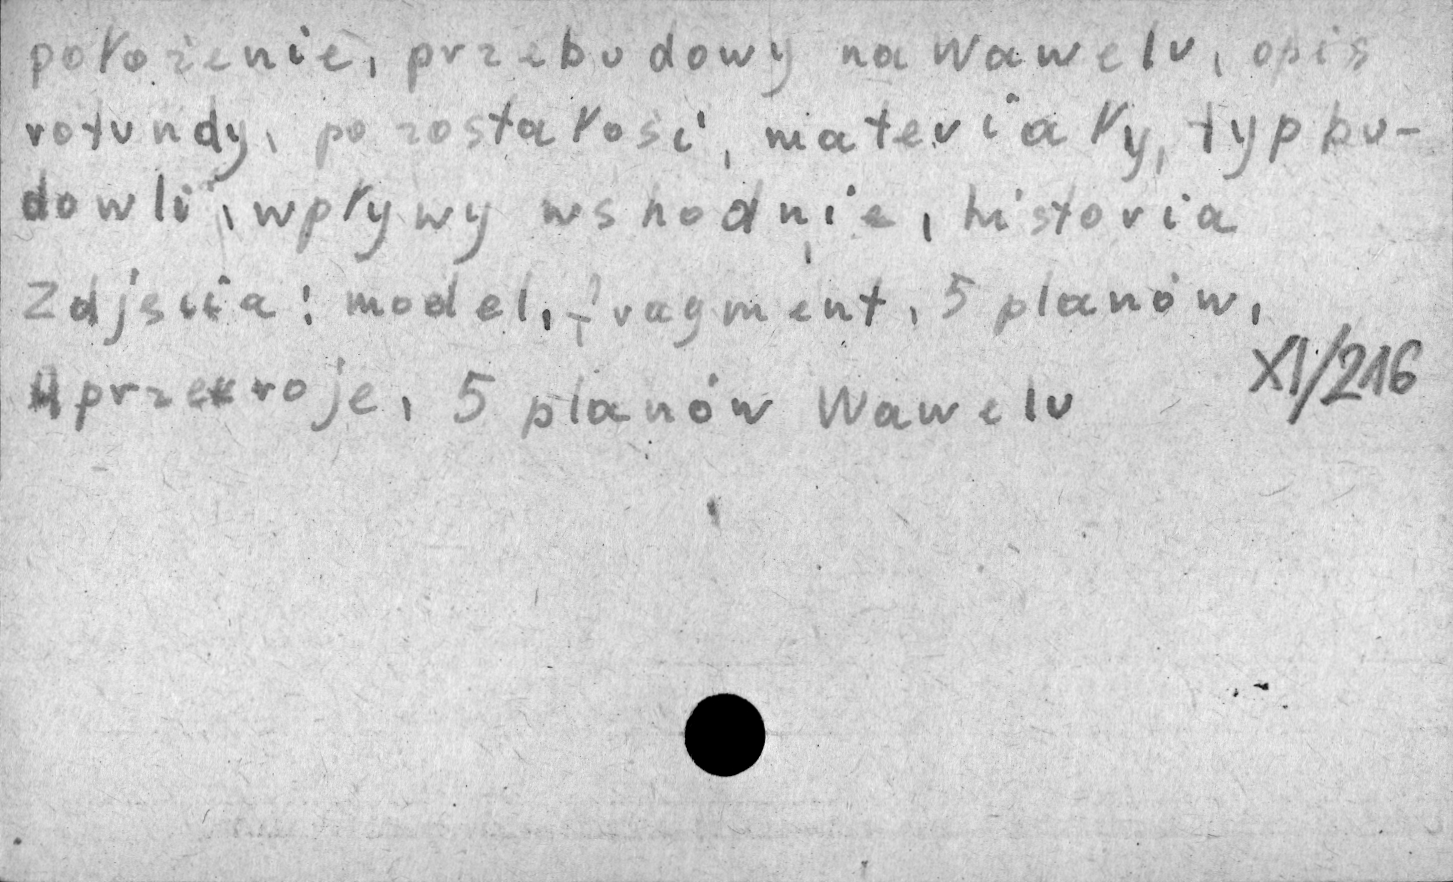 położenie, przebudowy na Wawelu, opis
rotundy, pozostałość, materiały, typ bu-
dowli, wpływy wshodnie, historia
Zdjęcia: model, fragment, 5 planów,
4 przekroje, 5 planów Wawelu
XI/216